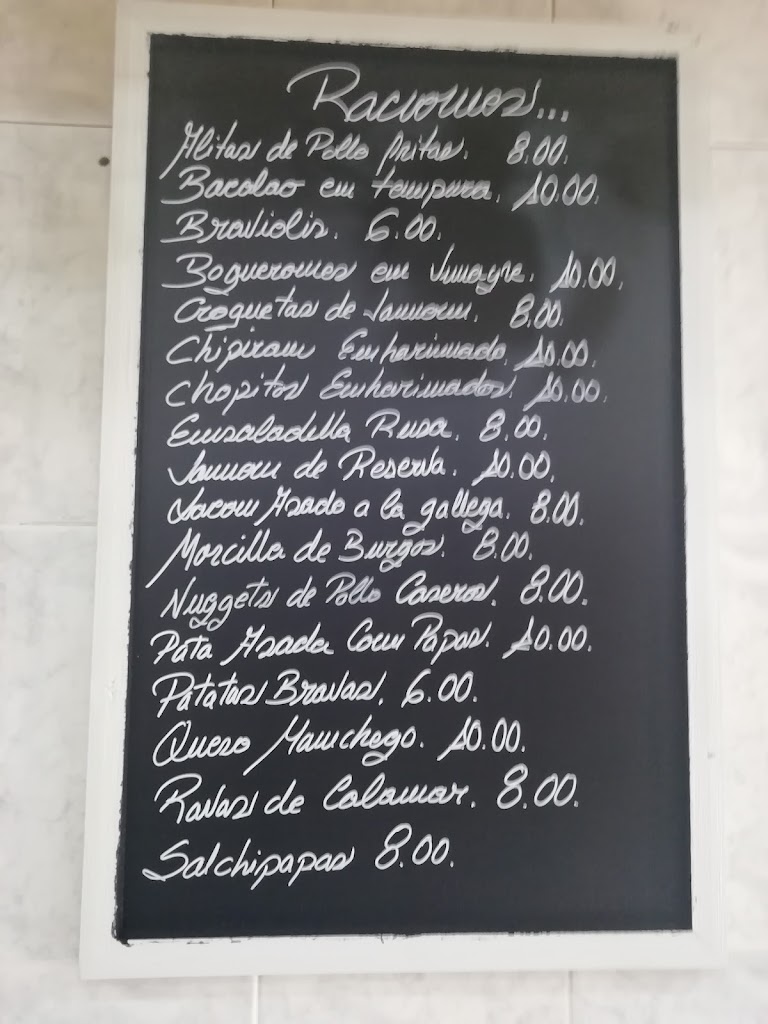 Raciones...
Alitas de Pollo fritas. 8.00.
Bacalao en tempura. 10.00.
Braviolis. 6.00.
Boquerones en Vinagre. 10.00.
Croquetas de Jamon. 8.00.
Chipiron Enharinado. 10.00.
Chopitos Enharinados. 10.00.
Ensaladilla Rusa. 8.00.
Jamon de Reserva. 10.00.
Lacon Asado a la gallega. 8.00.
Morcilla de Burgos. 8.00.
Nuggets de Pollo Caseros. 8.00.
Pata Asada Con Papas. 10.00.
Patatas Bravas. 6.00.
Queso Manchego. 10.00.
Ravas de Calamar. 8.00.
Salchipapas 8.00.